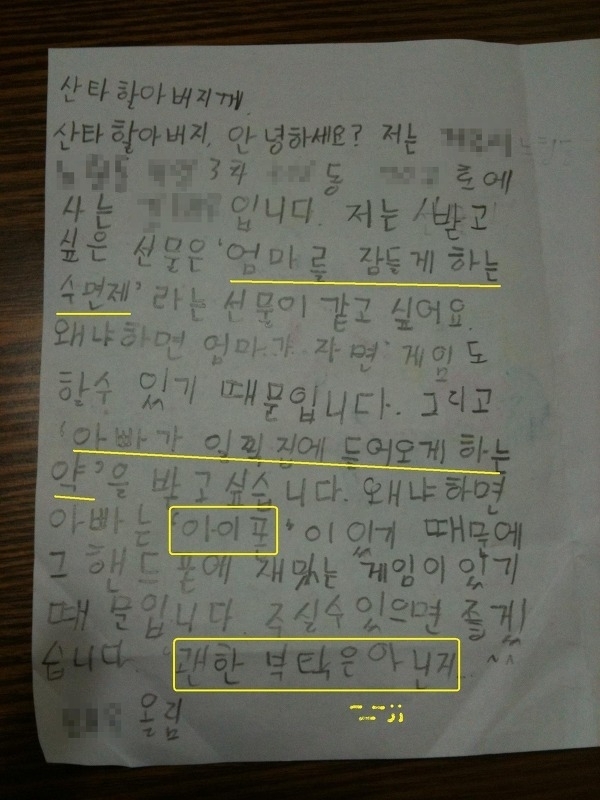 산타할아버지께
산타할아버지, 안녕하세요? 저는
3차 동 호에
사는 입니다. 저는 받고
싶은 선물은 '엄마를 잠들게 하는
수면제' 라는 선물이 같고 싶어요.
왜냐하면 엄마가 자면 게임도
할수 있기 때문입니다. 그리고
'아빠가 일찍집에 들어오게 하는
약'을 받고싶습니다. 왜냐하면
아빠는 '아이폰' 이 있기 때문에
그 핸드폰에 재밌는 게임이 있기
때문입니다. 주실수있으면 좋겠
습니다. 괜한 부탁은 아닌지...
올림
ㅡㅡ;;